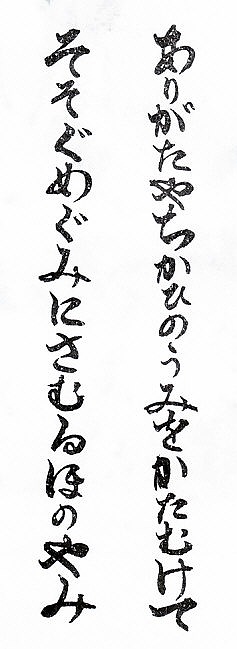 ありがたやちかひのうみをかたむけて
そそぐめぐみにさむるほのやみ